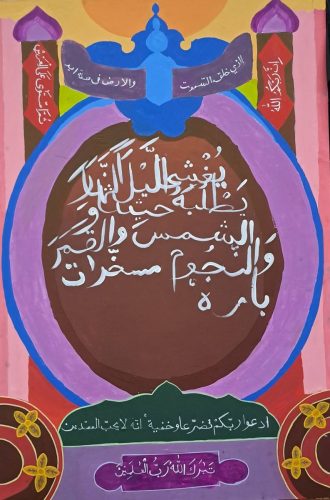 إن ربكم الله
الذي خلق السموت
والارض في ستة ايام
ثم استوى على العرش
يُغْشِي الَّيْلَ النَّهَارَ
يَطْلُبُهُ حَثِيثًا وَ
الشَّمْسَ وَالْقَمَرَ
وَالنُّجُومَ مسخّرات
بامره
ادعوا ربكم تضرعا وخفية انه لا يحب المعتدين
تبرك الله رب العلمين